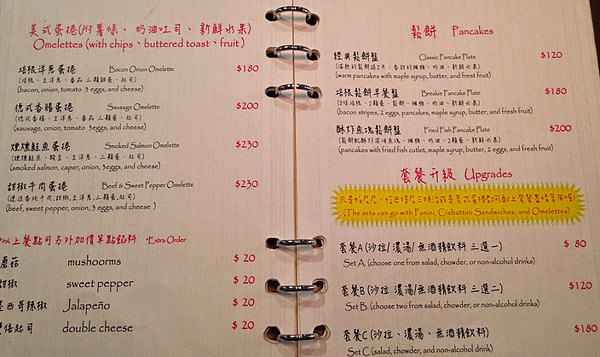 美式蛋捲(附薯條、奶油吐司、新鮮水果)
Omelettes (with chips、buttered toast、fruit)
培根洋蔥蛋捲 Bacon Onion Omelette $180
(培根、洋蔥、番茄、三顆雞蛋、起司)
(bacon, onion, tomato 3 eggs, and cheese)
德式香腸蛋捲 Sausage Omelette $200
(德式香腸、洋蔥、番茄、三顆雞蛋、起司)
(sausage, onion, tomato 3eggs, and cheese)
煙燻鮭魚蛋捲 Smoked Salmon Omelette $230
(煙燻鮭魚、酸豆、洋蔥、三顆雞蛋、起司)
(smoked salmon, caper, onion, 3eggs, and cheese)
甜椒牛肉蛋捲 Beef & Sweet Pepper Omelette $230
甜椒,洋蔥,三顆雞蛋,起司)
(beef, sweet pepper, onion, 3 eggs, and cheese )
以上餐點可另外加價單點餡料 *Extra Order
蘑菇 mushoorms $ 20
甜椒 sweet pepper $ 20
墨西哥辣椒 Jalapeño $ 20
雙倍起司 double cheese $ 20
鬆餅 Pancakes
經典鬆餅盤 Classic Pancake Plate $120
(warm pancakes with maple syrup, butter, and frest fruit)
培根鬆餅早餐盤 Breakie Pancake Plate $180
2顆蛋、鬆餅、楓糖、奶油、新鮮水果)
(bacon stripes, 2 eggs, pancakes, maple syrup, butter, and fresh fruit)
酥炸魚塊鬆餅盤 Fried Fish Pancake Plate $200
楓糖、奶油、2顆蛋、新鮮水果)
(pancakes with fried fish cutlet, maple syrup, butter, 2 eggs, and fresh fruit)
套餐升級 Upgrades
(The sets can go with Panini, Ciabattini Sandwiches, and Omelettes)
套餐A (沙拉/ 濃湯/ 無酒精飲料 三選一) $ 80
Set A (choose one from salad, chowder, or non-alcohol drinks)
套餐B (沙拉/ 濃湯/ 無酒精飲料 三選二) $120
Set B (choose two from salad, chowder, or non-alcohol drinks)
套餐C (沙拉、濃湯、無酒精飲料) $180
Set C (salad, chowder, and non-alcohol drink)